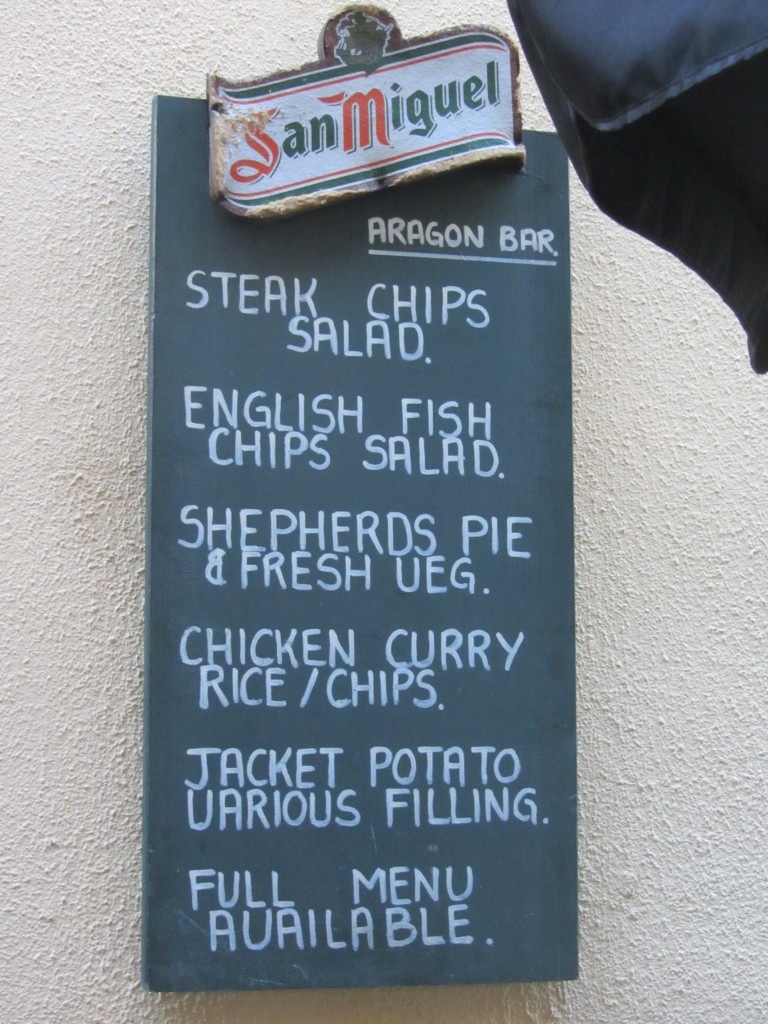 San Miguel
ARAGON BAR.
STEAK CHIPS
SALAD.
ENGLISH FISH
CHIPS SALAD.
SHEPHERDS PIE
& FRESH VEG.
CHICKEN CURRY
RICE/CHIPS.
JACKET POTATO
VARIOUS FILLING.
FULL MENU
AVAILABLE.